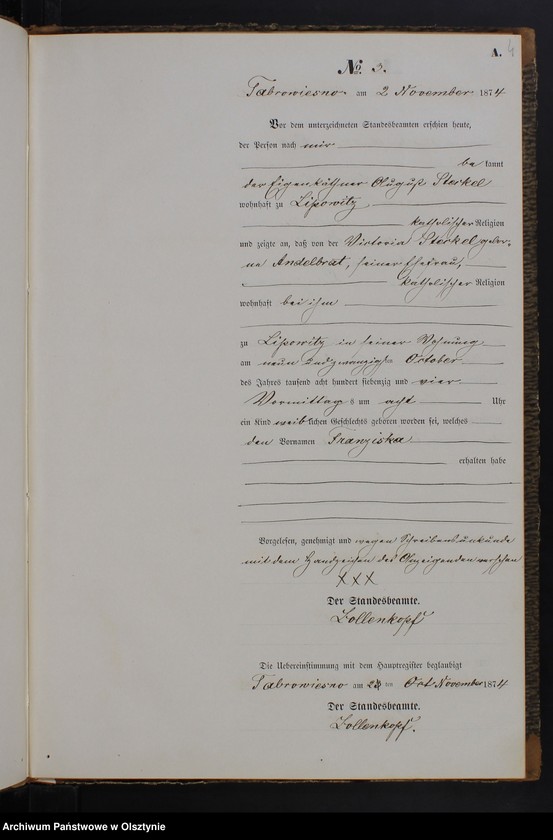 A. 4
No. 3.
Tabrowiesno am 2 November 1874
Vor dem unterzeichneten Standesbeamten erschien heute,
der Person nach mir
bekannt
der Eigenkäthner August Sterkel
wohnhaft zu Lipowitz
katholischer Religion
und zeigte an, daß von der Victoria Sterkel gebor-
ne Andelbrat, seiner Ehefrau,
katholischer Religion
wohnhaft bei ihm
zu Lipowitz in seiner Wohnung
am neun und zwanzigsten October
des Jahres tausend acht hundert siebenzig und vier
Vormittags um acht Uhr
ein Kind weiblichen Geschlechts geboren worden sei, welches
den Vornamen Franziska
erhalten habe
Vorgelesen, genehmigt und wegen Schreibensunkunde
mit dem Handzeichen des Anzeigenden versehen
XXX
Der Standesbeamte.
Bollenkopf
Die Uebereinstimmung mit dem Hauptregister beglaubigt
Tabrowiesno am 2 ten November 1874
Der Standesbeamte.
Bollenkopf.
Archiwum Państwowe w Olsztynie